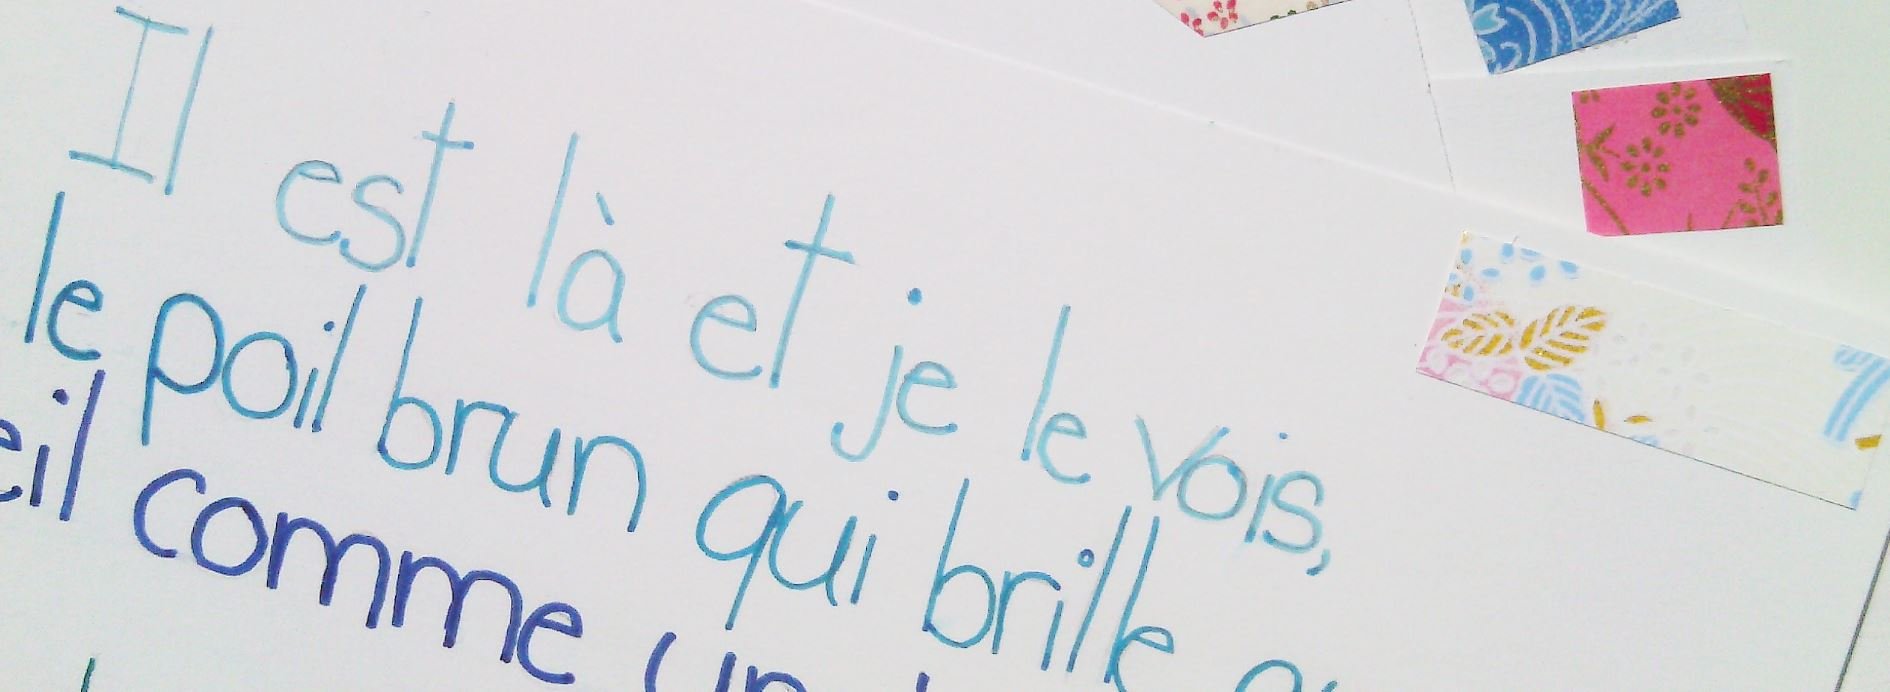 Il est là et je le vois,
le poil brun qui brille
comme